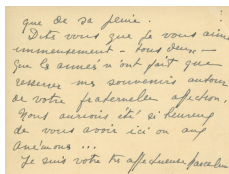 que de sa plume.
Dites vous que je vous aime
immensement - tous deux -
que les années n'ont fait que
resserrer mes souvenirs autour
de votre fraternelle affection.
Nous aurions été si heureux
de vous avoir ici ou aux
anémones ...
Je suis votre très affectueuse